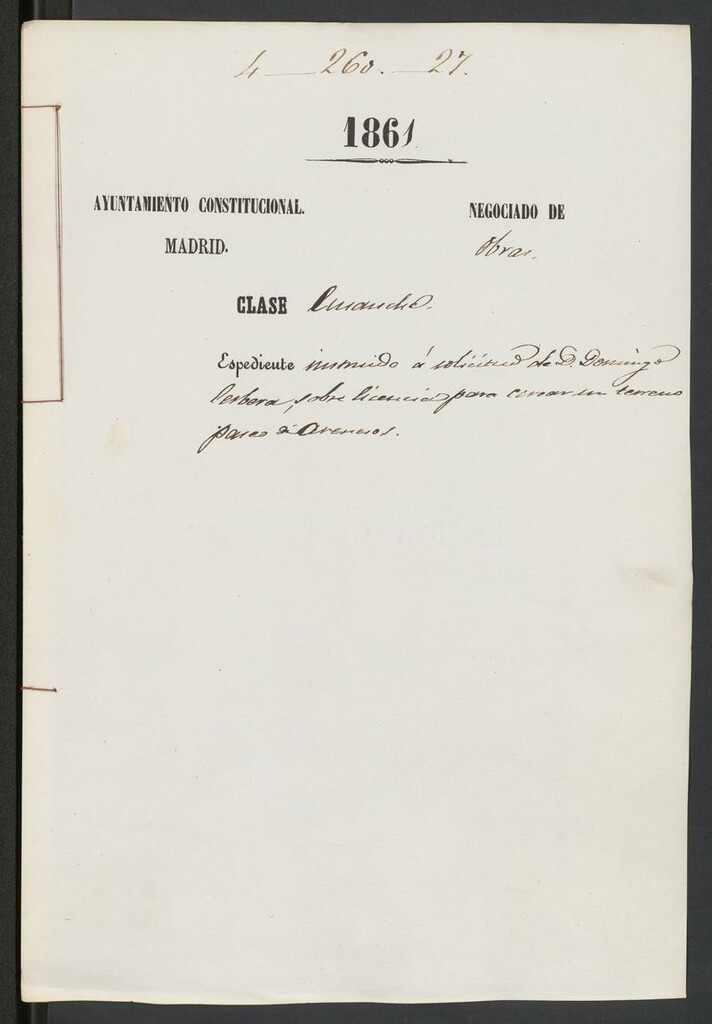 4 — 260. — 27.
1861
AYUNTAMIENTO CONSTITUCIONAL.
MADRID.
NEGOCIADO DE
Obras.
CLASE Ensanche.
Espediente instruido á solicitud de D. Domingo
sobre licencia para cerrar un terreno
paseo de Areneros.